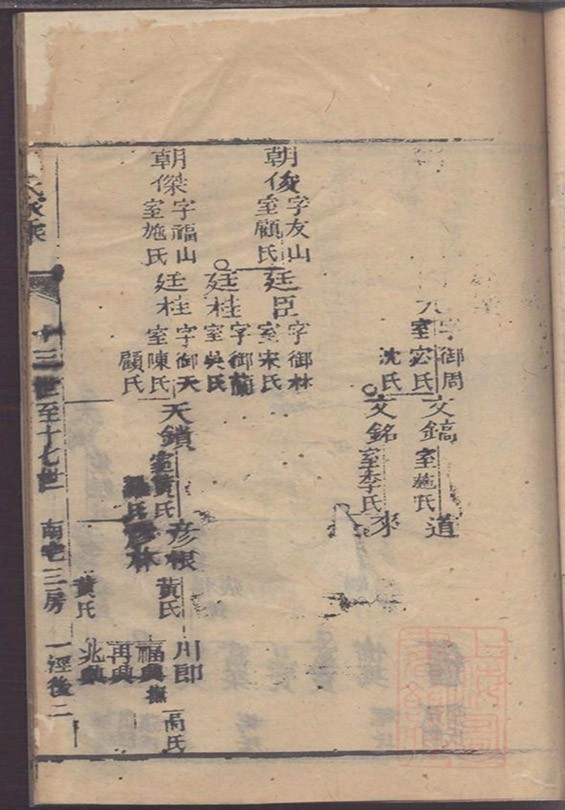 字御周
室宓氏
沈氏
文鎬
室施氏
道
文銘
室李氏
來
朝俊
字友山
室顧氏
廷臣
字御林
室宋氏
廷桂
字御蘭
室吳氏
朝傑
字福山
室施氏
廷柱
字御天
室陳氏
顧氏
天鎖
室黃氏
彥根
黃氏
川卽
福興
高氏
彥林
黃氏
再興
兆興
氏家乘
十三世至十七世
南宅三房
一涇後二